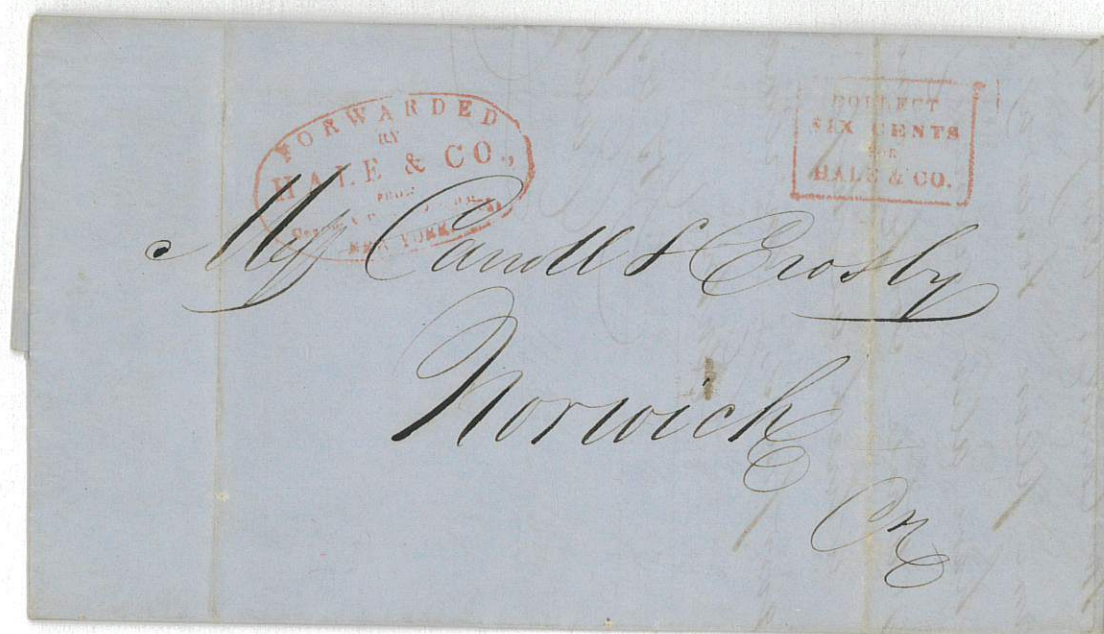 FORWARDED
BY
HALE & CO.,
FROM
NEW YORK
COLLECT
SIX CENTS
FOR
HALE & CO.
Mess Caudll & Crosby
Norwich
Cn